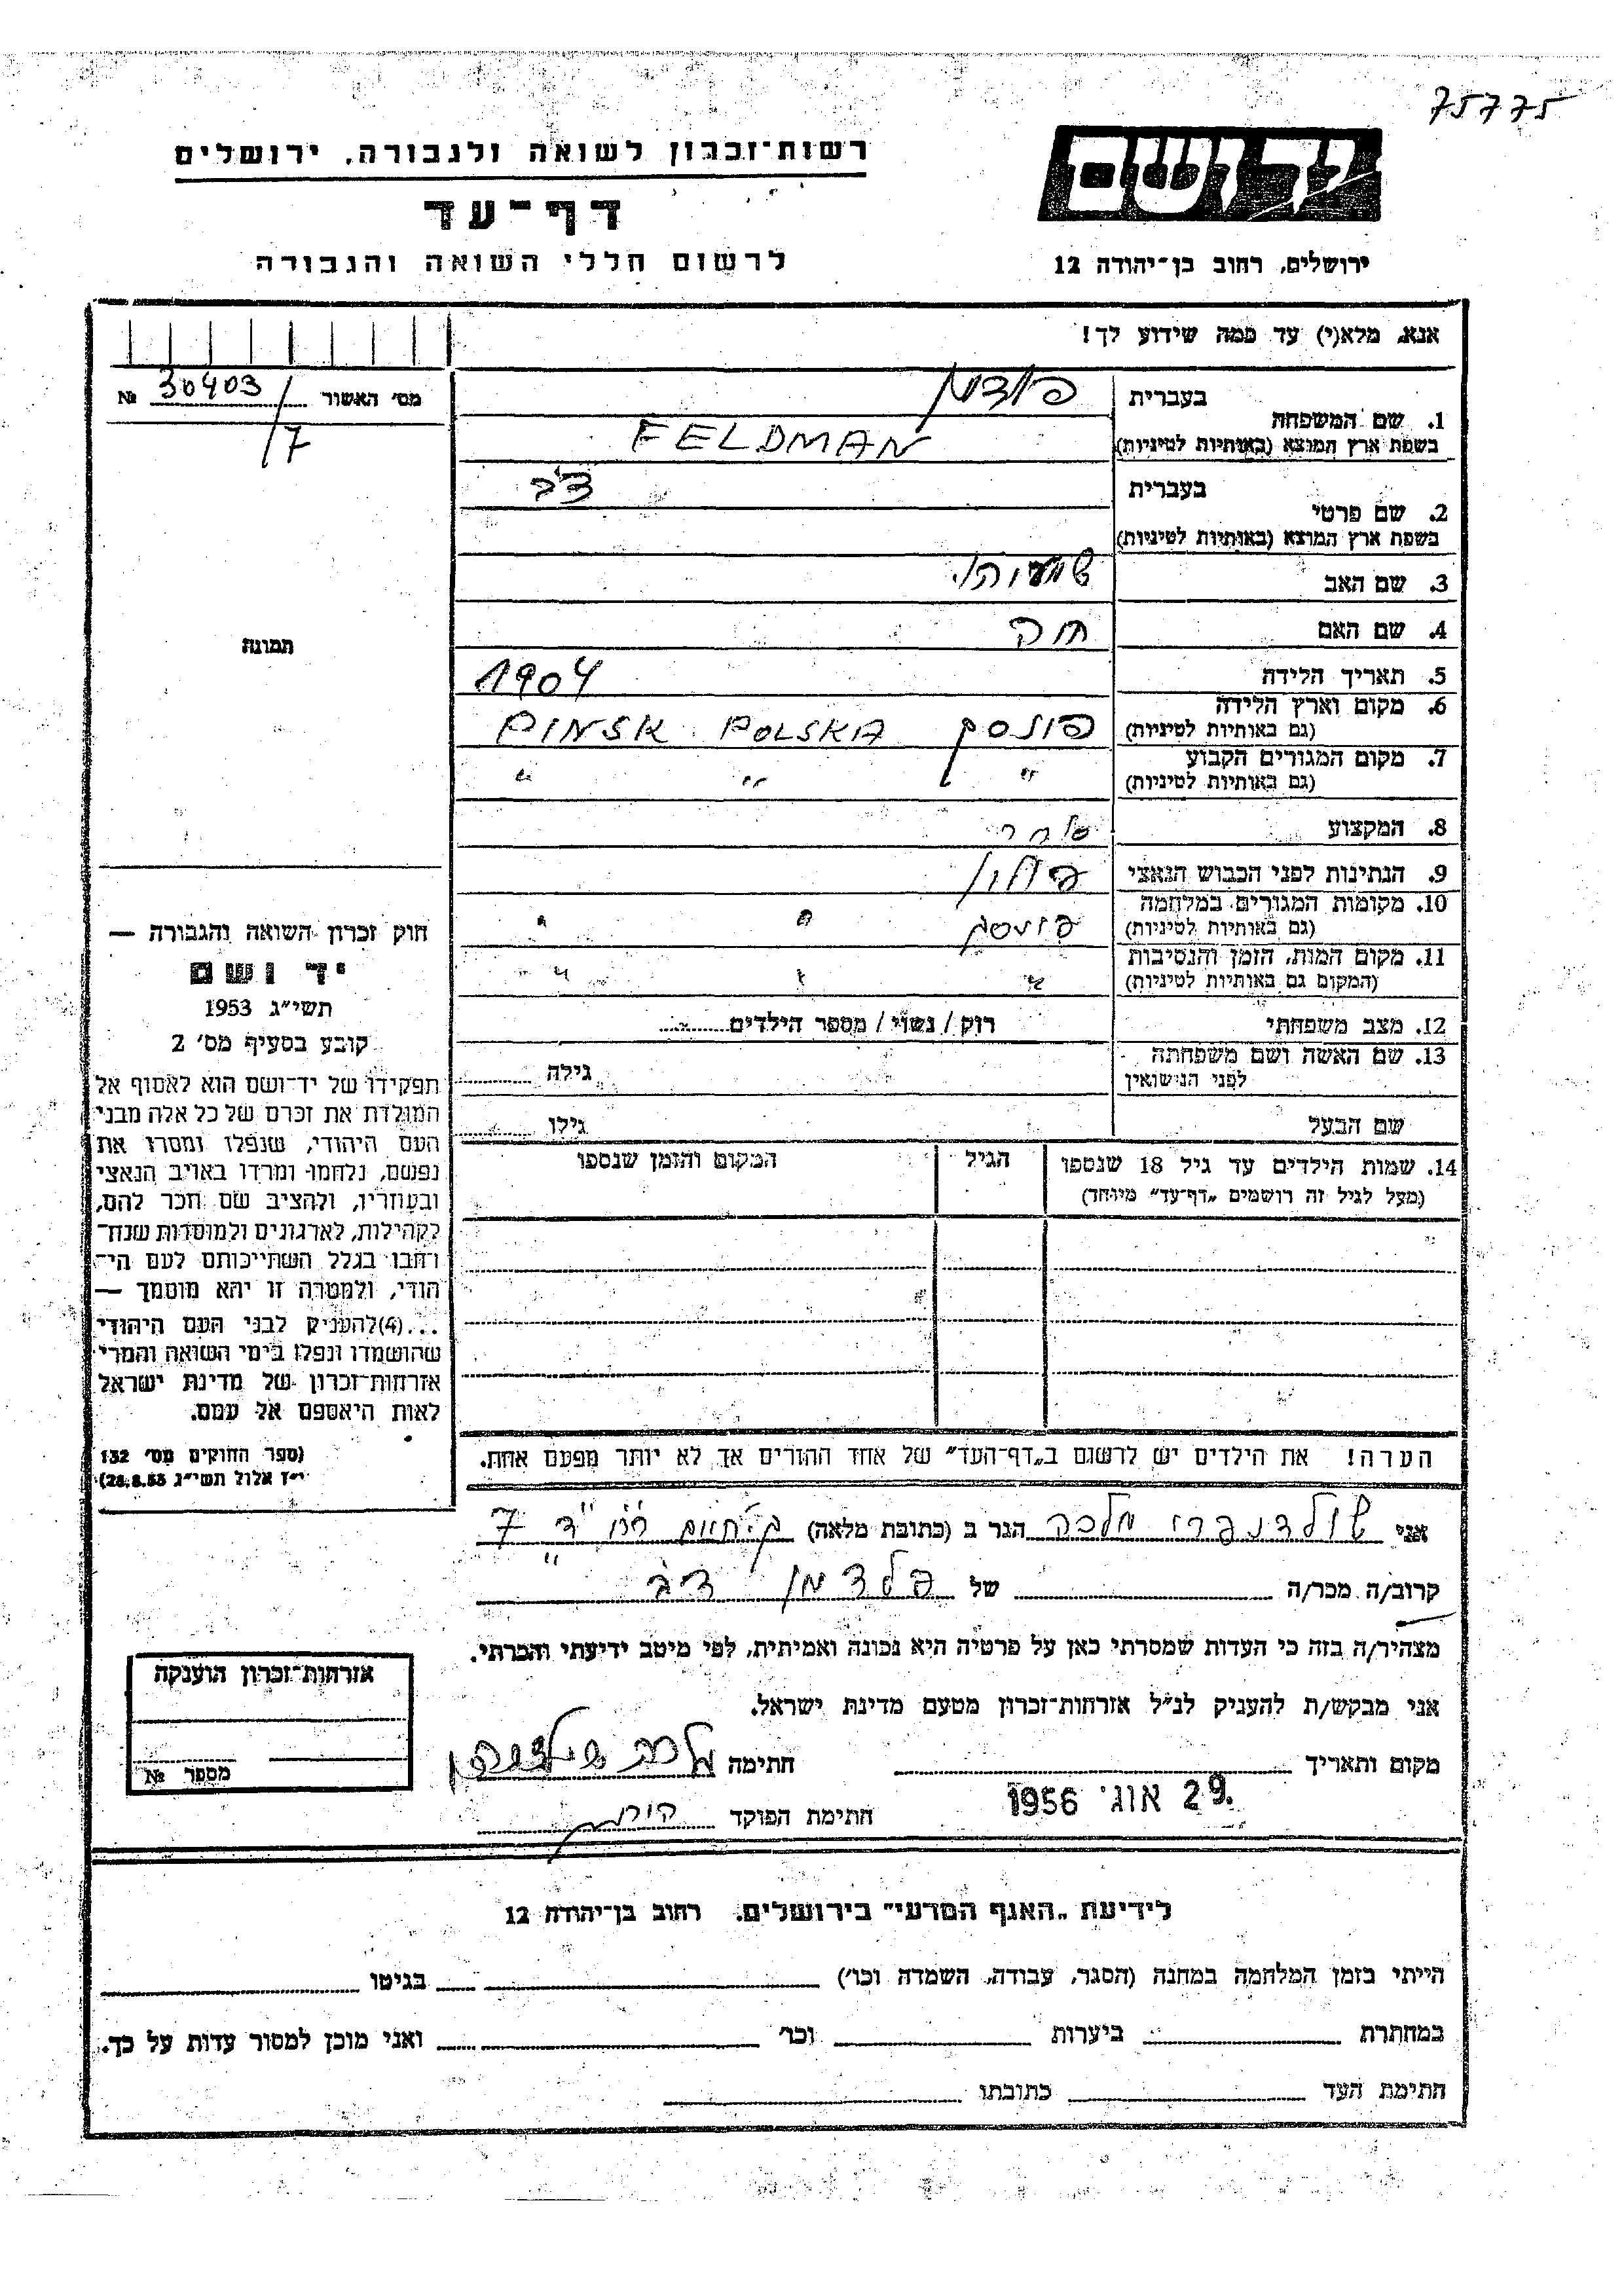 75775
יד ושם
רשות־זכרון לשואה ולגבורה, ירושלים
דף־עד
לרשום חללי השואה והגבורה
ירושלים, רחוב בן־יהודה 12
אנא, מלא(י) עד כמה שידוע לך!
מס' האשור 30403 №
/7
1. שם המשפחה
בעברית
בשפת ארץ המוצא (באותיות לטיניות) FELDMAN
2. שם פרטי
בעברית דב
בשפת ארץ המוצא (באותיות לטיניות)
3. שם האב
4. שם האם
5. תאריך הלידה 1904
6. מקום וארץ הלידה
(גם באותיות לטיניות) פינסק PINSK POLSKA
7. מקום המגורים הקבוע
(גם באותיות לטיניות) " " "
8. המקצוע סוחר
9. הנתינות לפני הכבוש הנאצי פולין
10. מקומות המגורים במלחמה
(גם באותיות לטיניות) פינסק " "
11. מקום המות, הזמן והנסיבות
(המקום גם באותיות לטיניות) " " "
12. מצב משפחתי רווק / נשוי / מספר הילדים
13. שם האשה ושם משפחתה
לפני הנישואין גילה
שם הבעל גילו
14. שמות הילדים עד גיל 18 שנספו
(מעל לגיל זה רושמים „דף־עד" מיוחד)
הגיל
המקום והזמן שנספו
הערה! את הילדים יש לרשום ב„דף־העד" של אחד ההורים אך לא יותר מפעם אחת.
תמונה
חוק זכרון השואה והגבורה —
יד ושם
תשי"ג 1953
קובע בסעיף מס' 2
תפקידו של יד־ושם הוא לאסוף אל
המולדת את זכרם של כל אלה מבני
העם היהודי, שנפלו ומסרו את
נפשם, נלחמו ומרדו באויב הנאצי
ובעוזריו, ולהציב שם וזכר להם,
לקהילות, לארגונים ולמוסדות שנח־
רבו בגלל השתייכותם לעם הי־
הודי, ולמטרה זו יהא מוסמך —
...(4)להעניק לבני העם היהודי
שהושמדו ונפלו בימי השואה והמרי
אזרחות־זכרון של מדינת ישראל
לאות היאספם אל עמם.
(ספר החוקים מס' 132
י"ז אלול תשי"ג 28.8.53)
אני מלכה הגר ב (כתובת מלאה) 7
קרוב/ה מכר/ה של פלדמן דב
מצהיר/ה בזה כי העדות שמסרתי כאן על פרטיה היא נכונה ואמיתית, לפי מיטב ידיעתי והכרתי.
אני מבקש/ת להעניק לנ"ל אזרחות־זכרון מטעם מדינת ישראל.
מקום ותאריך חתימה מלכה
29. אוג' 1956
חתימת הפוקד
אזרחות־זכרון הוענקה
מספר №
לידיעת „האגף המדעי" בירושלים, רחוב בן־יהודה 12
הייתי בזמן המלחמה במחנה (הסגר, עבודה, השמדה וכו') בגיטו
במחתרת ביערות וכו' ואני מוכן למסור עדות על כך.
חתימת העד כתובתו